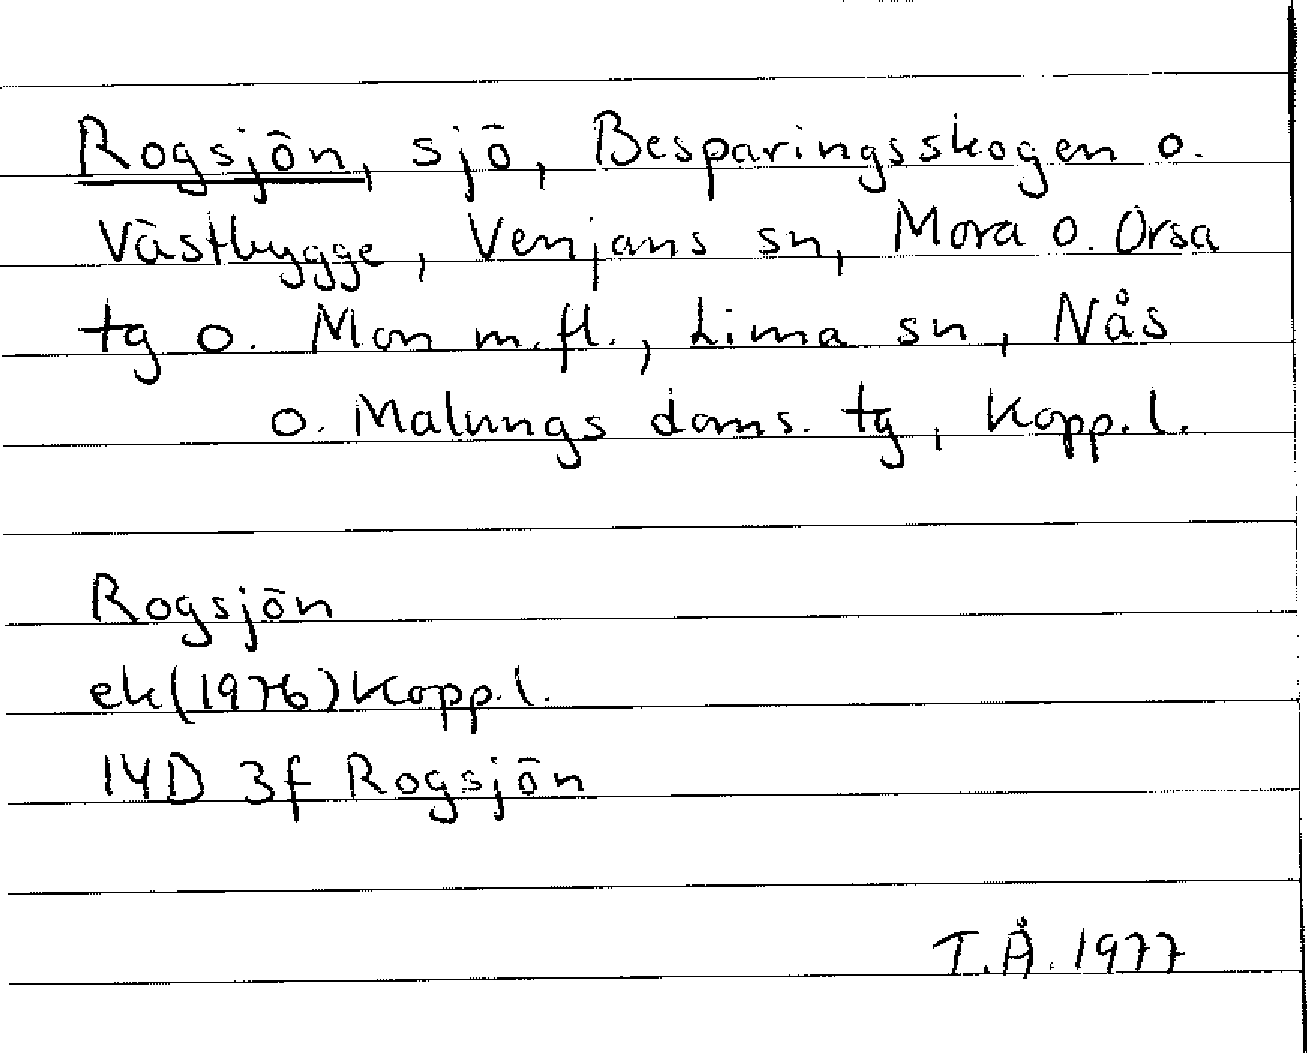 Rogsjön, sjö, Besparingsskogen o.
Västbygge, Venjans sn, Mora o. Orsa
tg o. Mon m.fl., Lima sn, Nås
o. Malungs doms. tg, Kopp.l.
Rogsjön
ek(1976)Kopp.l.
14D 3f Rogsjön
T.Å. 1977